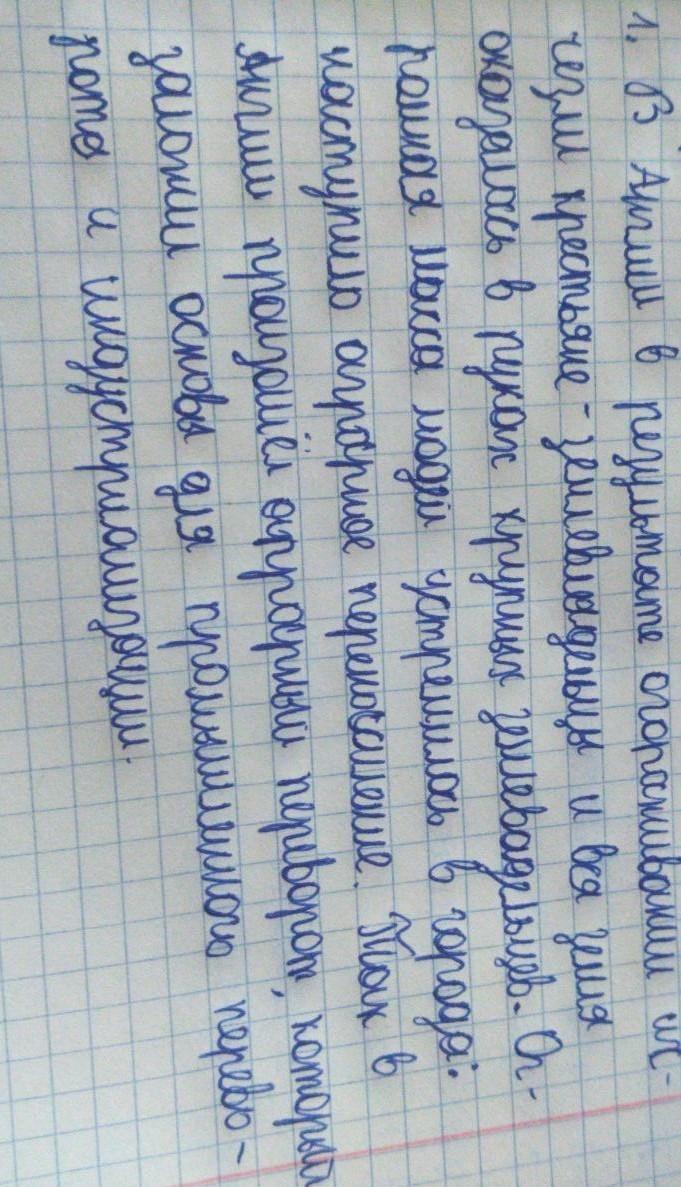 1. В Англии в результате огораживаний ис-
чезли крестьяне-землевладельцы и вся земля
оказалась в руках крупных землевадельцев. Ог-
ромная масса людей устремилась в города:
наступило аграрное перенаселение. Так в
Англии произошёл аграрный переворот, который
заложил основы для промышленного перево-
рота и индустриализации.